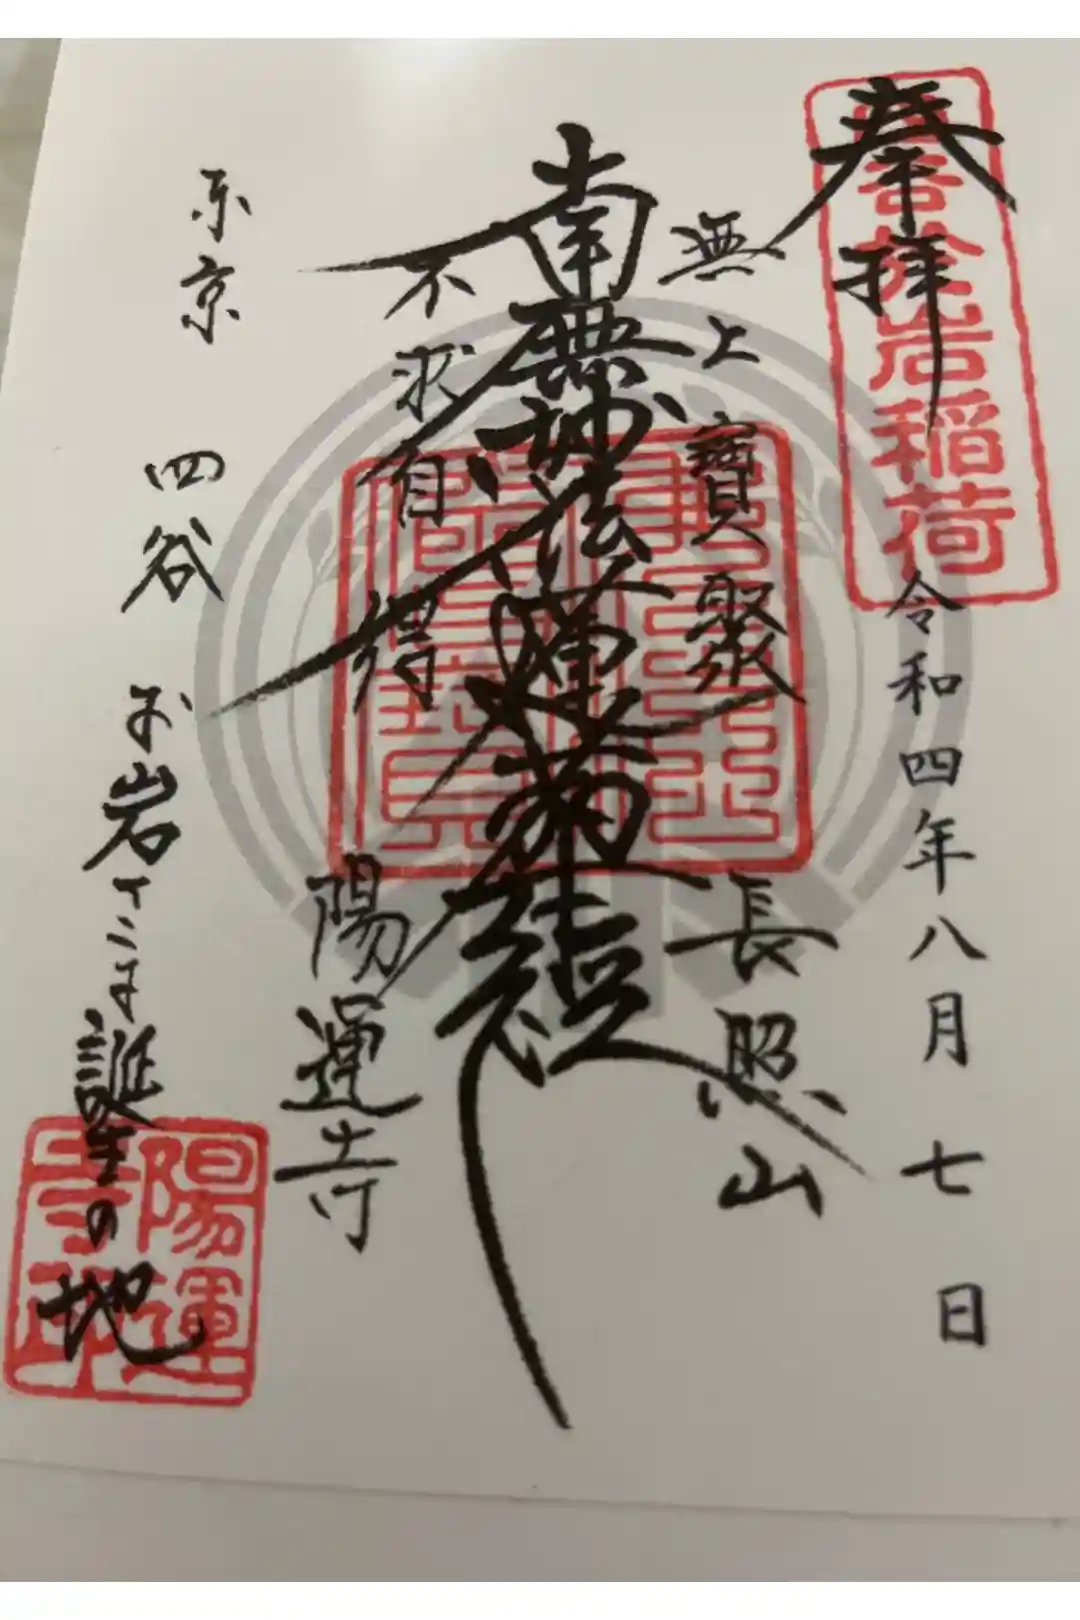 奉拝
於岩稲荷
令和四年八月七日
無上寶聚
長照山
南無妙法蓮華経
不求自得
陽運寺
東京 四谷 お岩さま誕生の地
陽運寺印